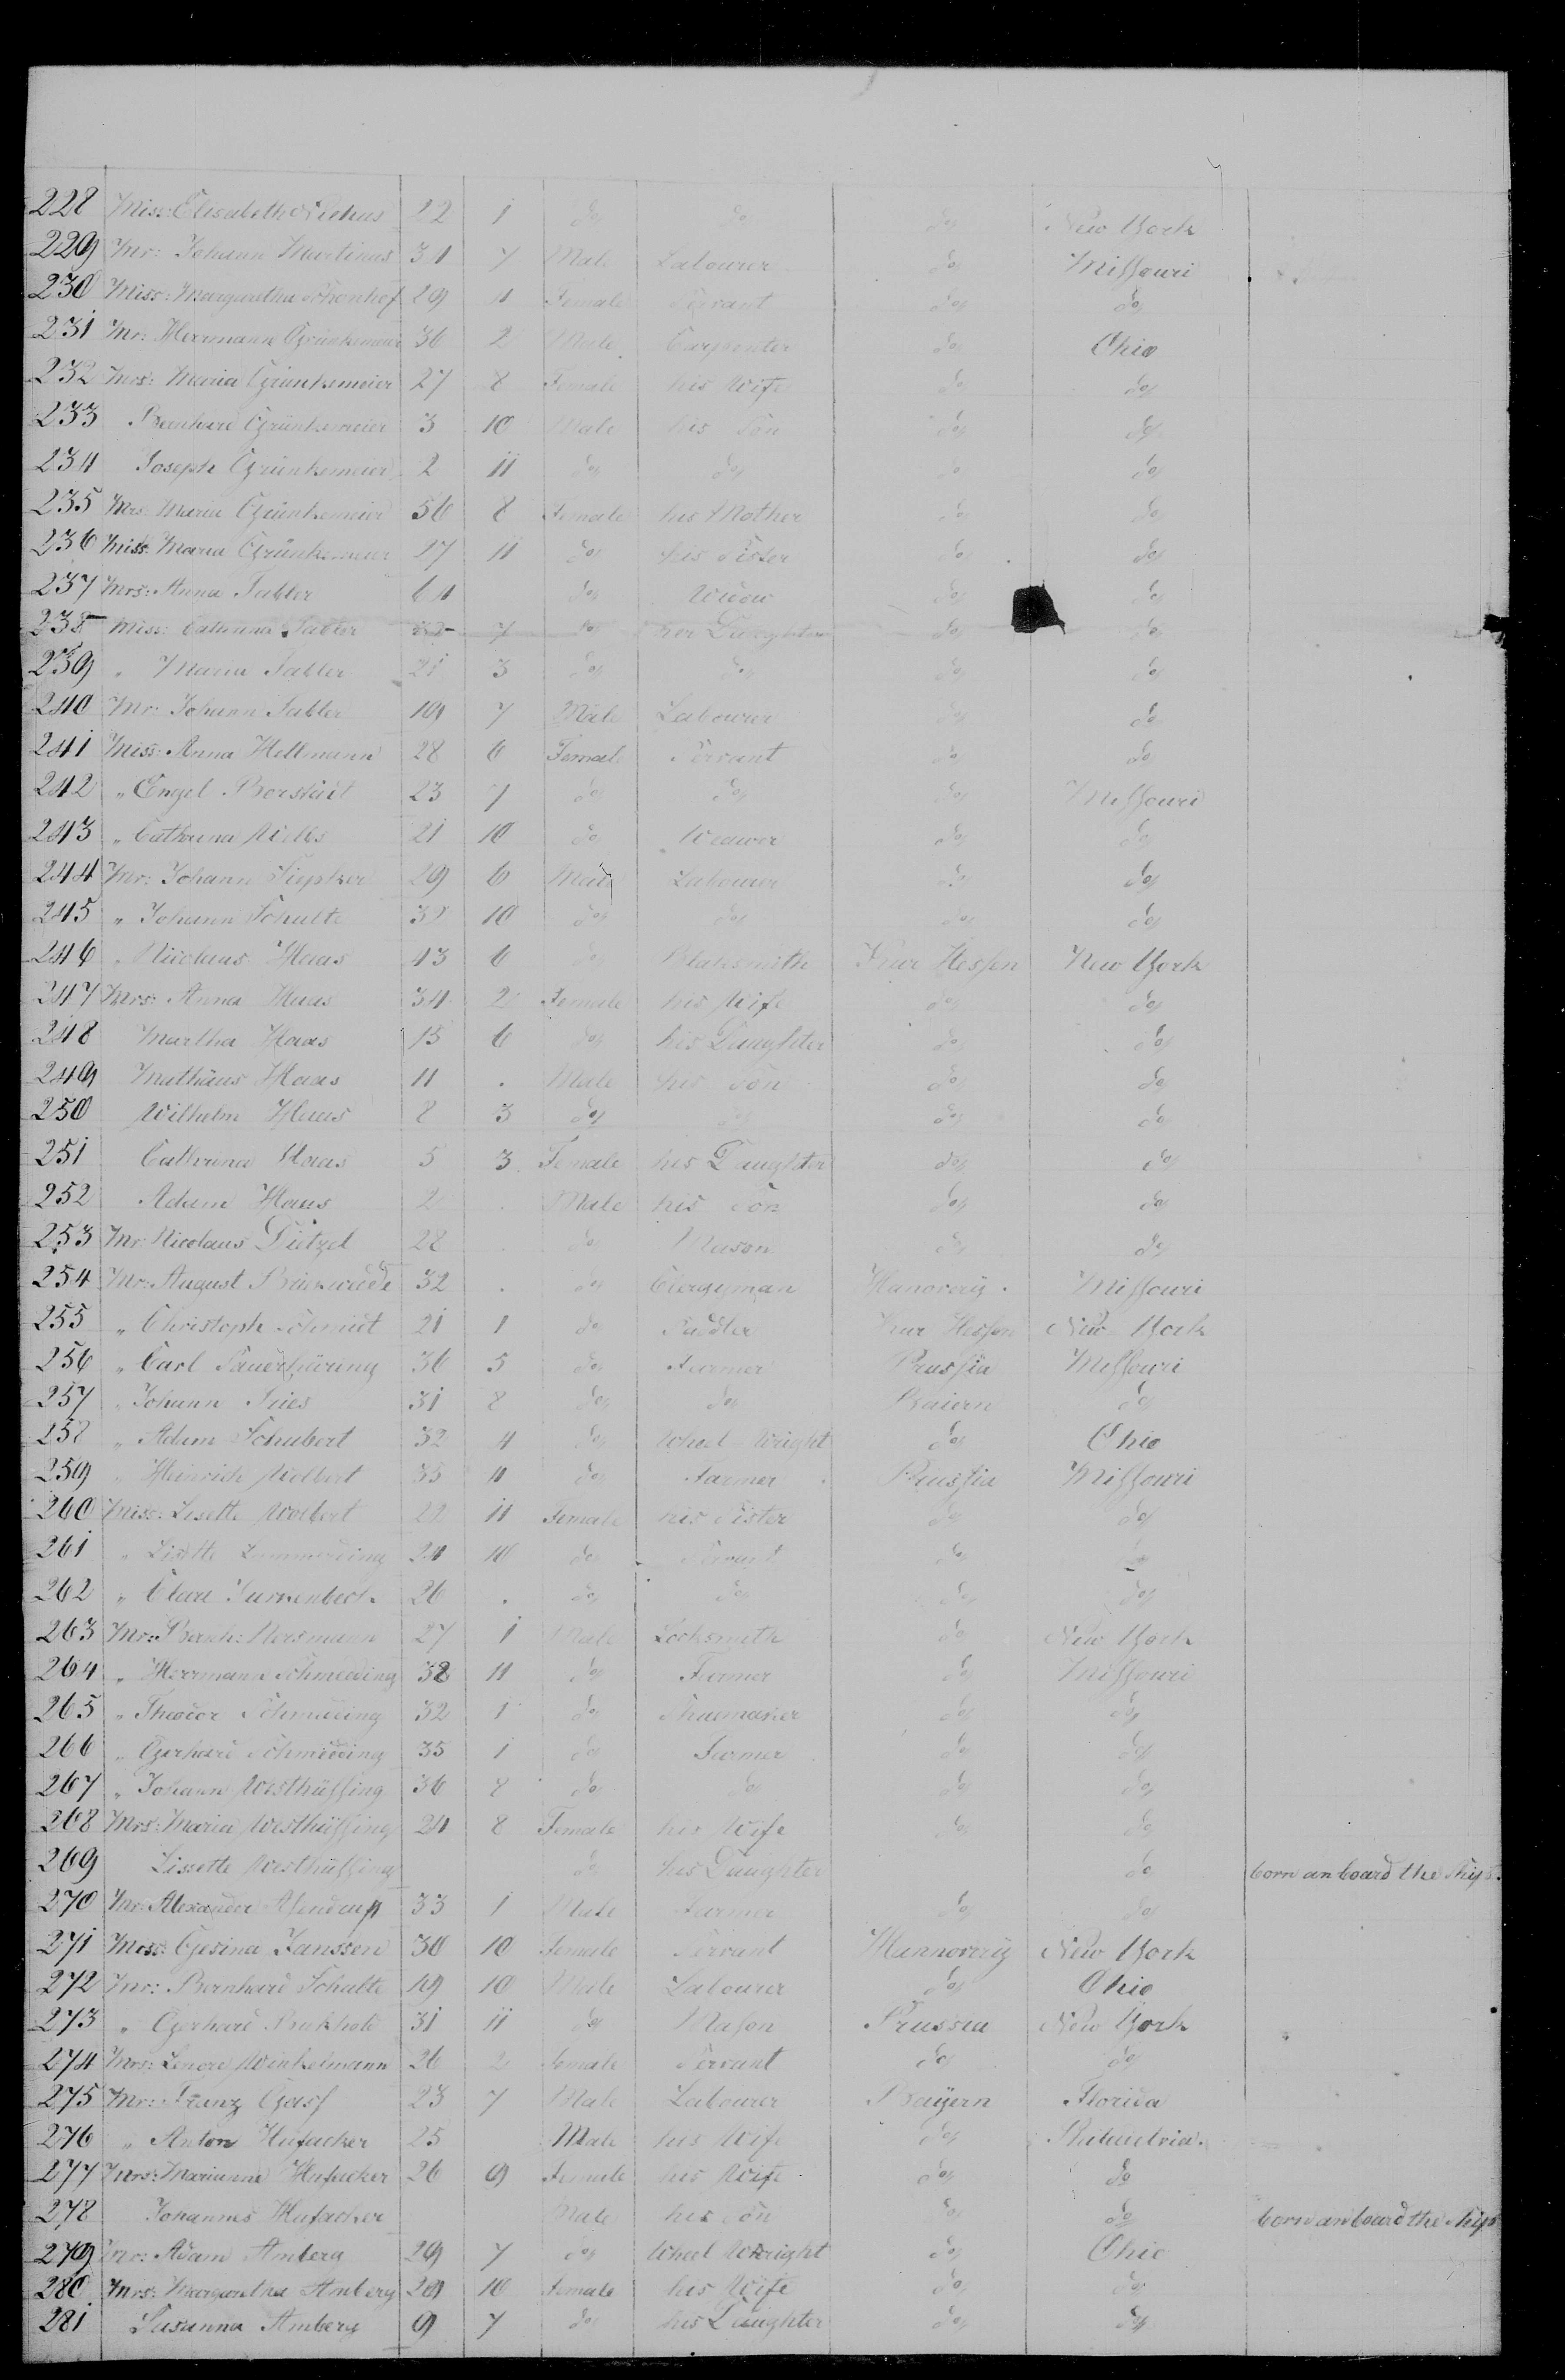 228 Miss: Elisabeth Niehus 22 1 do do do New York
229 Mr: Johann Martinus 31 7 Male Labourer do Missouri
230 Miss: Margaretha 29 11 Female Servant do do
231 Mr: Herrmann Grünkemeier 36 2 Male Carpenter do Ohio
232 Mrs: Maria Grünkemeier 27 8 Female his Wife do do
233 Bernhard Grünkemeier 3 10 Male his Son do do
234 Joseph Grünkemeier 2 11 do do do do
235 Mrs: Maria Grünkemeier 56 8 Female his Mother do do
236 Miss: Maria Grünkemeier 27 11 do his Sister do do
237 Mrs: Anna Tabler 64 do Widow do do
238 Miss: Catharina Tabler 7 do her Daughter do do
239 " Maria Tabler 21 3 do do do do
240 Mr: Johann Tabler 19 7 Male Labourer do do
241 Miss: Anna Hellmann 28 6 Female Servant do do
242 " Engel Borstadt 23 7 do do do Missouri
243 " Catharina 21 10 do Weawer do do
244 Mr: Johann Siepker 29 6 Male Labourer do do
245 " Johann Schulte 32 10 do do do do
246 " Nicolaus Haas 43 6 do Blaksmith Kur Hessen New York
247 Mrs: Anna Haas 34 2 Female his Wife do do
248 Martha Haas 15 6 do his Daughter do do
249 Mathäus Haas 11 . Male his Son do do
250 Wilhelm Haas 8 3 do do do do
251 Catharina Haas 5 3 Female his Daughter do do
252 Adam Haas 2 . Male his Son do do
253 Mr: Nicolaus Dietzel 28 . do Mason do do
254 Mr: August 32 . do Clergyman Hanoverig. Missouri
255 " Christoph Schmidt 21 1 do Saddler Kur Hessen New York
256 " Carl Sauerhäring 36 5 do Farmer Prussia Missouri
257 " Johann Fries 31 8 do do Baiern do
258 " Adam Schubert 32 4 do Wheel-Wright do Ohio
259 " Heinrich Wolbert 35 11 do Farmer Prussia Missouri
260 Miss: Lisette Wolbert 22 11 Female his Sister do do
261 " Lisette 24 10 do Servant do do
262 " Clara 26 . do do do do
263 Mr: Bernh: Norsmann 27 1 Male Locksmith do New York
264 " Herrmann Schmeding 38 11 do Farmer do Missouri
265 " Theodor Schmeding 32 1 do Shuemaker do do
266 " Gerhard Schmeding 35 1 do Farmer do do
267 " Johann Westhüssing 36 8 do do do do
268 Mrs: Maria Westhüssing 24 8 Female his Wife do do
269 Lissette Westhüssing do his Daughter do born an board the Ship.
270 Mr: Alexander 33 1 Male Farmer do do
271 Miss: Gesina Janssen 30 10 Female Servant Hannoverig New York
272 Mr: Bernhard Schulte 19 10 Male Labourer do Ohio
273 " Gerhard Bukhold 31 11 do Mason Prussia New York
274 Mrs: Lenore Winkelmann 26 2 Female Servant do do
275 Mr: Franz Gass 23 7 Male Labourer Bayern Florida
276 " Anton Hufacker 25 Male his Wife do
277 Mrs: Marianna Hufacker 26 9 Female his Wife do do
278 Johannes Hufacker Male his Son do do born an board the Ship
279 Mr: Adam Amberg 29 7 do Wheel Wright do Ohio
280 Mrs: Margaretha Amberg 29 10 Female his Wife do do
281 Susanna Amberg 9 7 do his Daughter do do